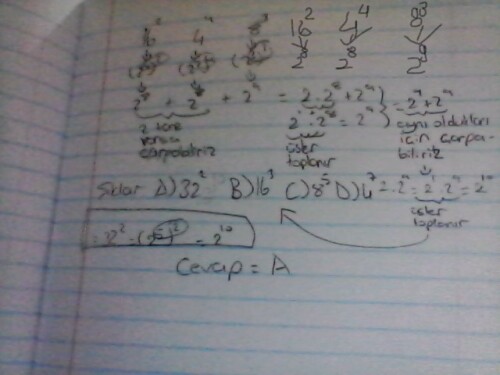 16² 4⁴ 8³ 16² 4⁴ 8³
2⁸ 2⁸ 2⁹
2⁸ + 2⁸ + 2⁹ = 2·2⁸+2⁹ = 2⁹+2⁹
2¹·2⁸ = 2⁹
2 tane varsa çarpabiliriz
üsler toplanır
aynı oldukları için çarpabiliriz
Şıklar A) 32² B) 16³ C) 8⁵ D) 4⁷ = 2·2⁹ = 2¹·2⁹ = 2¹⁰
üsler toplanır
= 32² = (2⁵)² = 2¹⁰
Cevap = A